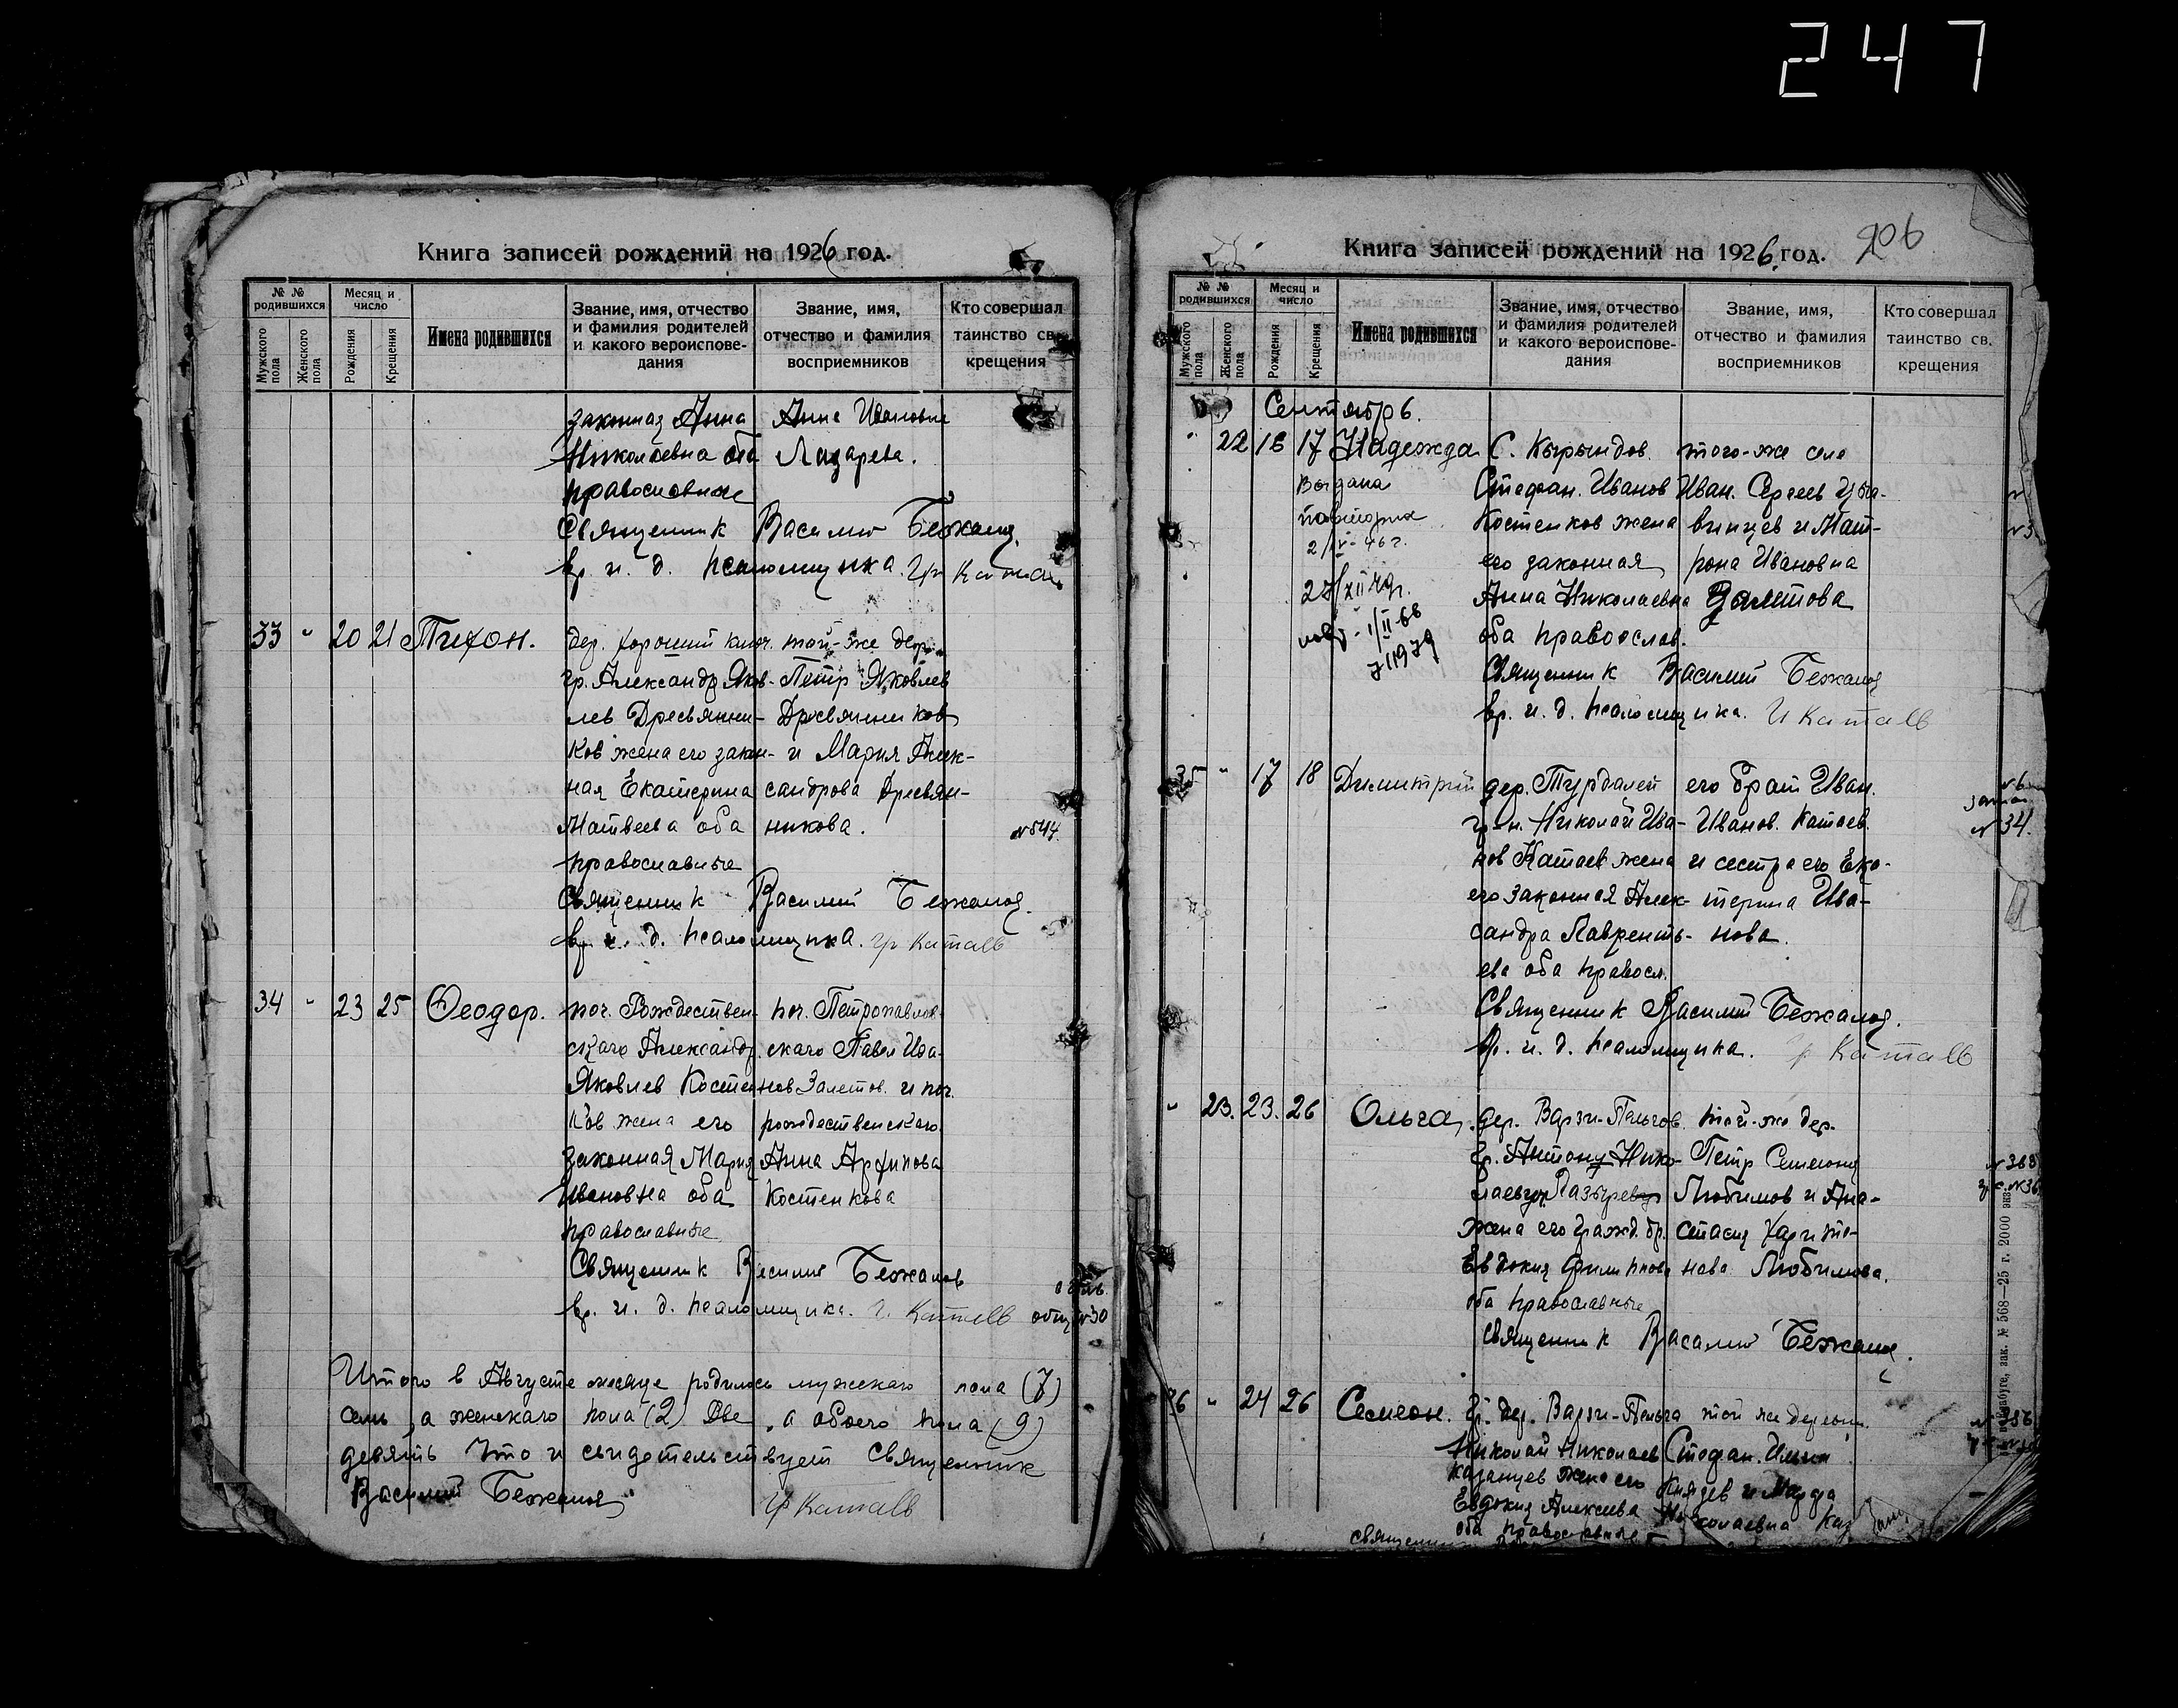 247
Книга записей рождений на 1926 год.
№ № родившихся
Месяц и число
Имена родившихся
Звание, имя, отчество и фамилия родителей и какого вероисповедания
Звание, имя, отчество и фамилия восприемников
Кто совершал таинство св. крещения
Мужского пола
Женского пола
Рождения
Крещения
законная Анна Анна Ивановна
Николаевна оба Лазарева.
православные
Священник Василий Бежанов.
вр. и. д. псаломщика. Гр Катаев
33 " 20 21 Тихон. дер. Хороший ключ. той-же дер.
гр. Александр Яков- Петр Яковлев
лев Дресвянни- Дресвянников
ков жена его закон- и Мария Алек-
ная Екатерина сандрова Дресвян-
Матвеева оба никова. №544
православные
Священник Василий Бежанов.
вр. и. д. псаломщика. Гр Катаев
34 " 23 25 Феодор. поч. Рождествен- поч. Петропавлов-
скаго Александр. скаго Павел Ива-
Яковлев Костен- нов Залетов. и поч.
ков жена его рождественскаго
законная Мария Анна Архипова
Ивановна оба Костенкова
православные
Священник Василий Бежанов
вр. и. д. псаломщика. Г. Катаев №30
Итого в Августе месяце родилось мужскаго пола (7)
семь, а женскаго пола (2) две, а обоего пола (9)
девять что и свидетельствует Священник
Василий Бежанов Гр Катаев
Книга записей рождений на 1926 год. 206
№ № родившихся
Месяц и число
Имена родившихся
Звание, имя, отчество и фамилия родителей и какого вероисповедания
Звание, имя, отчество и фамилия восприемников
Кто совершал таинство св. крещения
Мужского пола
Женского пола
Рождения
Крещения
Сентябрь.
" 22 16 17 Надежда С. Кырындов. того-же села
Выдана Стефан. Иванов Иван. Сергеев
повторна Костенков жена винцев и Мат-
2/IV-46 г. его законная рона Ивановна
27/XII 49г. Анна Николаевна Залетова
повт - 1/II-68 оба православ.
Священник Василий Бежанов
вр. и. д. псаломщика. Катаев
35 " 17 18 Димитрий дер. Турдалей его брат Иван.
гр-н. Николай Ива- Иванов. Катаев. №34.
нов Катаев жена и сестра его Ека-
его законная Алек- терина Ива-
сандра Лаврентъ- нова.
ева оба правосл.
Священник Василий Бежанов.
вр. и. д. псаломщика. Гр Катаев
" 23. 23. 26 Ольга. дер. Варзи-Пельгов. той-же дер.
гр. Антону Нико- Петр Семенов №383
лаевич Лазырев Любимов и Ана-
жена его гражд. бр. стасия Харито-
Евдокия Филиппова нова Любимова.
оба православные
Священник Василий Бежанов.
36 " 24 26 Семеон. Гр. дер. Варзи-Пельга той же деревни.
Николай Николаев Стефан. Ильин №386
Казанцев жена его Князев и Марфа
Евдокия Алексеева Николаевна Каз
оба православные
священник
зак. № 568—25 г. 2000 экз.